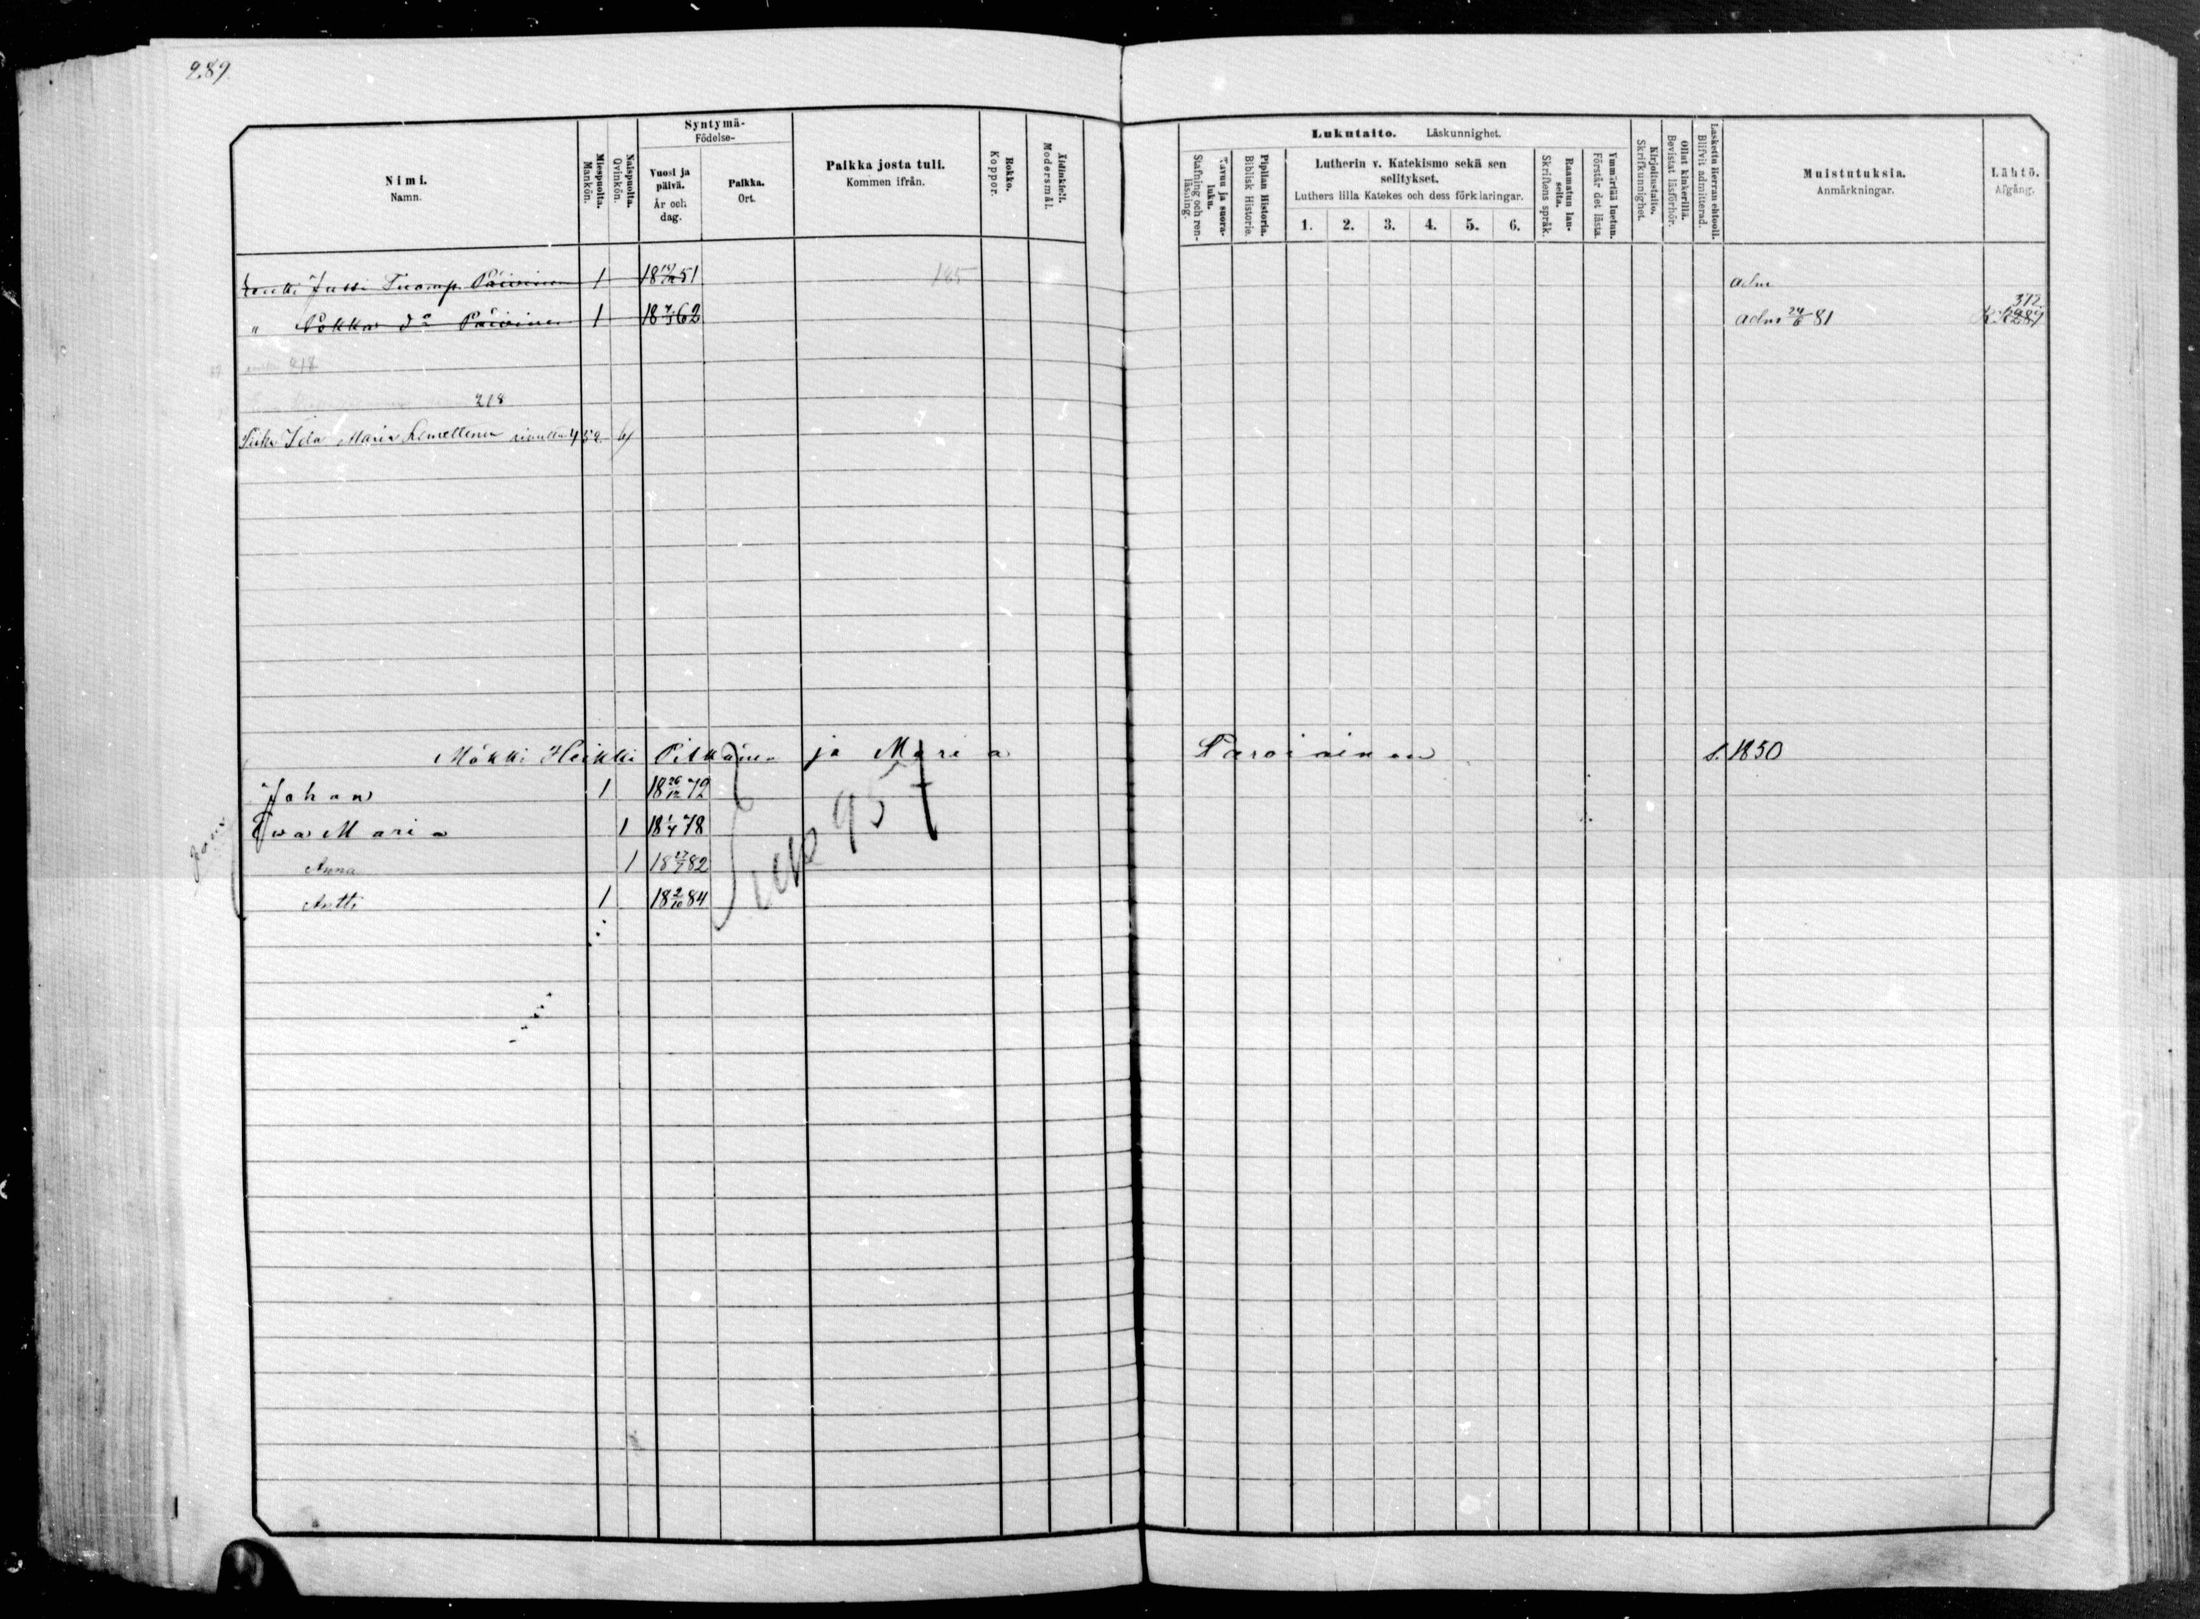 289
Syntymä-
Födelse-
Nimi.
Namn.
Miespuolta.
Mankön.
Naispuolta.
Qvinkön.
Vuosi ja
päivä.
År och
dag.
Paikka.
Ort.
Paikka josta tuli.
Kommen ifrån.
Rokko.
Koppor.
Äidinkieli.
Modersmål.
Lukutaito. Läskunnighet.
Tavuu ja suora-
luku.
Stafning och ren-
läsning.
Piplian Historia.
Biblisk Historie.
Lutherin v. Katekismo sekä sen
selitykset.
Luthers lilla Katekes och dess förklaringar.
1. 2. 3. 4. 5. 6.
Raamatun lau-
seita.
Skriftens språk.
Ymmärtää luetun.
Förstår det lästa.
Kirjoitustaito.
Skrifkunnighet.
Ollut kinkerillä.
Bevistat läsförhör.
Laskettu Herran ehtooll.
Blifvit admitterad.
Muistutuksia.
Anmärkningar.
Lähtö.
Afgång.
Jussi Tuomp. Päivinen 1 18 51 185 adm
" Pekka d:o Päivinen 1 18 7/3 62 adm 24/6 81 312
218
218
Ida Maria Kemettinen sivulla 452
Mökki Heikki Pitkänen ja Maria Paroinen s. 1850
Johan 1 18 26/12 72
Eva Maria 1 18 1/4 78
Anna 1 18 27/7 82
Antti 1 18 2/10 84
siv 957